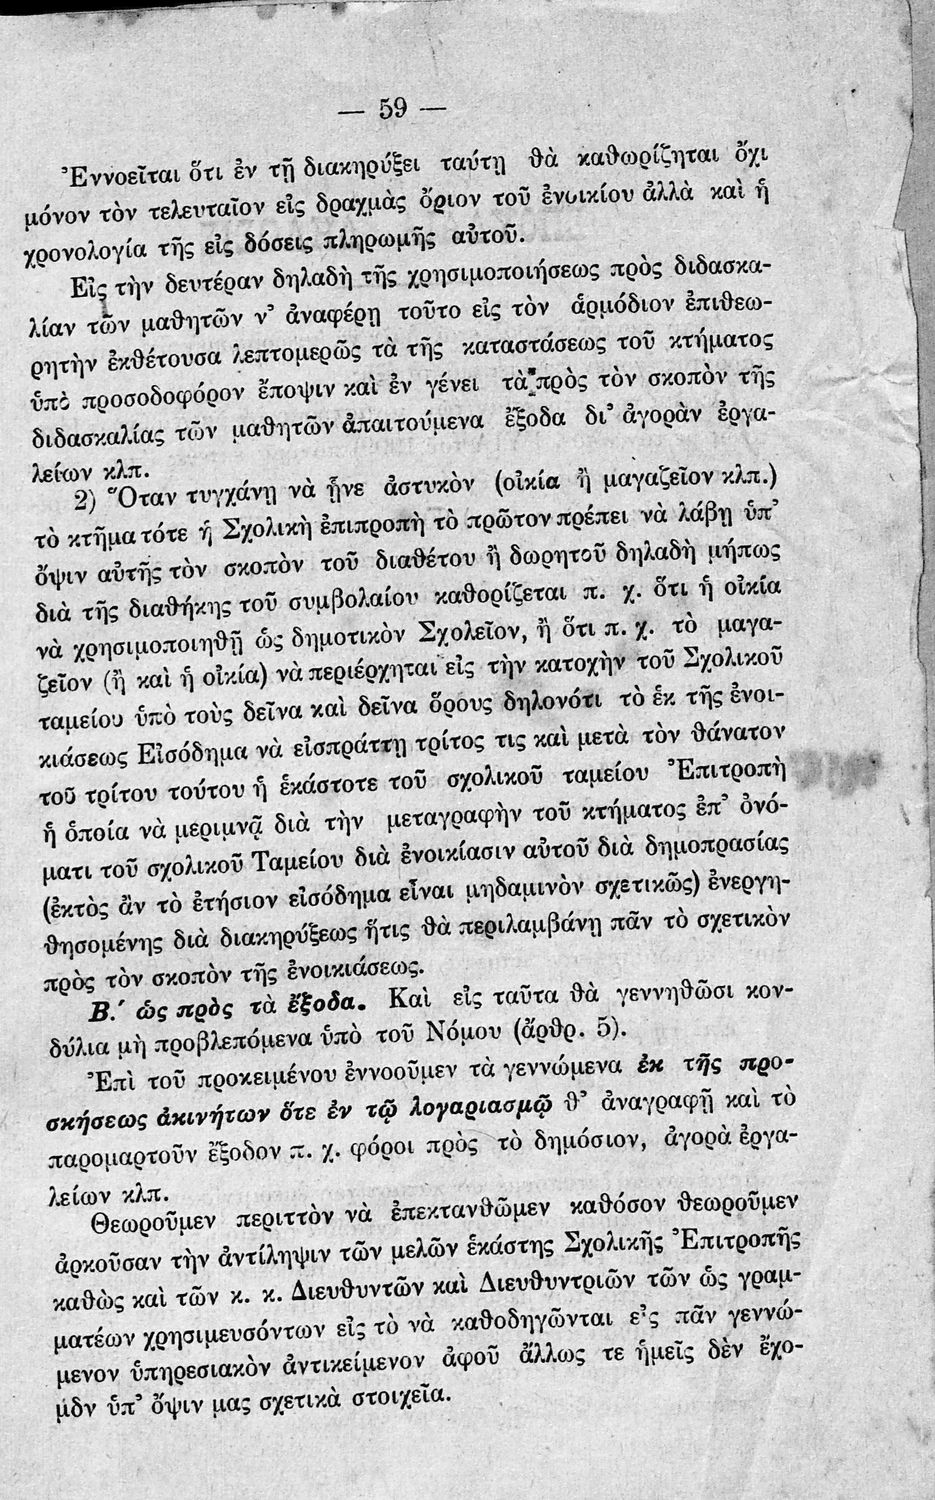 — 59 —
Ἐννοεῖται ὅτι ἐν τῇ διακηρύξει ταύτῃ θὰ καθωρίζηται ὄχι
μόνον τὸν τελευταῖον εἰς δραχμὰς ὅριον τοῦ ἐνοικίου ἀλλὰ καὶ ἡ
χρονολογία τῆς εἰς δόσεις πληρωμῆς αὐτοῦ.
Εἰς τὴν δευτέραν δηλαδὴ τῆς χρησιμοποιήσεως πρὸς διδασκα-
λίαν τῶν μαθητῶν ν᾽ ἀναφέρῃ τοῦτο εἰς τὸν ἁρμόδιον ἐπιθεω-
ρητὴν ἐκθέτουσα λεπτομερῶς τὰ τῆς καταστάσεως τοῦ κτήματος
ὑπὸ προσοδοφόρον ἔποψιν καὶ ἐν γένει τὰ πρὸς τὸν σκοπὸν τῆς
διδασκαλίας τῶν μαθητῶν ἀπαιτούμενα ἔξοδα δι᾽ ἀγορὰν ἐργα-
λείων κλπ.
2) Ὅταν τυγχάνῃ νὰ ᾖνε ἀστυκὸν (οἰκία ἢ μαγαζεῖον κλπ.)
τὸ κτῆμα τότε ἡ Σχολικὴ ἐπιπροπὴ τὸ πρῶτον πρέπει νὰ λάβῃ ὑπ᾽
ὄψιν αὐτῆς τὸν σκοπὸν τοῦ διαθέτου ἢ δωρητοῦ δηλαδὴ μήπως
διὰ τῆς διαθήκης τοῦ συμβολαίου καθορίζεται π. χ. ὅτι ἡ οἰκία
νὰ χρησιμοποιηθῇ ὡς δημοτικὸν Σχολεῖον, ἢ ὅτι π. χ. τὸ μαγα-
ζεῖον (ἢ καὶ ἡ οἰκία) νὰ περιέρχηται εἰς τὴν κατοχὴν τοῦ Σχολικοῦ
ταμείου ὑπὸ τοὺς δεῖνα καὶ δεῖνα ὅρους δηλονότι τὸ ἐκ τῆς ἐνοι-
κιάσεως Εἰσόδημα νὰ εἰσπράττῃ τρίτος τις καὶ μετὰ τὸν θάνατον
τοῦ τρίτου τούτου ἡ ἑκάστοτε τοῦ σχολικοῦ ταμείου Ἐπιτροπὴ
ἡ ὁποία νὰ μεριμνᾷ διὰ τὴν μεταγραφὴν τοῦ κτήματος ἐπ᾽ ὀνό-
ματι τοῦ σχολικοῦ Ταμείου διὰ ἐνοικίασιν αὐτοῦ διὰ δημοπρασίας
(ἐκτὸς ἂν τὸ ἐτήσιον εἰσόδημα εἶναι μηδαμινὸν σχετικῶς) ἐνεργη-
θησομένης διὰ διακηρύξεως ἥτις θὰ περιλαμβάνῃ πᾶν τὸ σχετικὸν
πρὸς τὸν σκοπὸν τῆς ἐνοικιάσεως.
Β.΄ ὡς πρὸς τὰ ἔξοδα. Καὶ εἰς ταῦτα θὰ γεννηθῶσι κον-
δύλια μὴ προβλεπόμενα ὑπὸ τοῦ Νόμου (ἄρθρ. 5).
Ἐπὶ τοῦ προκειμένου ἐννοοῦμεν τὰ γεννώμενα ἐκ τῆς προ-
σκήσεως ἀκινήτων ὅτε ἐν τῷ λογαριασμῷ θ᾽ ἀναγραφῇ καὶ τὸ
παρομαρτοῦν ἔξοδον π. χ. φόροι πρὸς τὸ δημόσιον, ἀγορὰ ἐργα-
λείων κλπ.
Θεωροῦμεν περιττὸν νὰ ἐπεκτανθῶμεν καθόσον θεωροῦμεν
ἀρκοῦσαν τὴν ἀντίληψιν τῶν μελῶν ἑκάστης Σχολικῆς Ἐπιτροπῆς
καθὼς καὶ τῶν κ. κ. Διευθυντῶν καὶ Διευθυντριῶν τῶν ὡς γραμ-
ματέων χρησιμευσόντων εἰς τὸ νὰ καθοδηγῶνται ε᾽ς πᾶν γεννώ-
μενον ὑπηρεσιακὸν ἀντικείμενον ἀφοῦ ἄλλως τε ἡμεῖς δὲν ἔχο-
μδν ὑπ᾽ ὄψιν μας σχετικὰ στοιχεῖα.